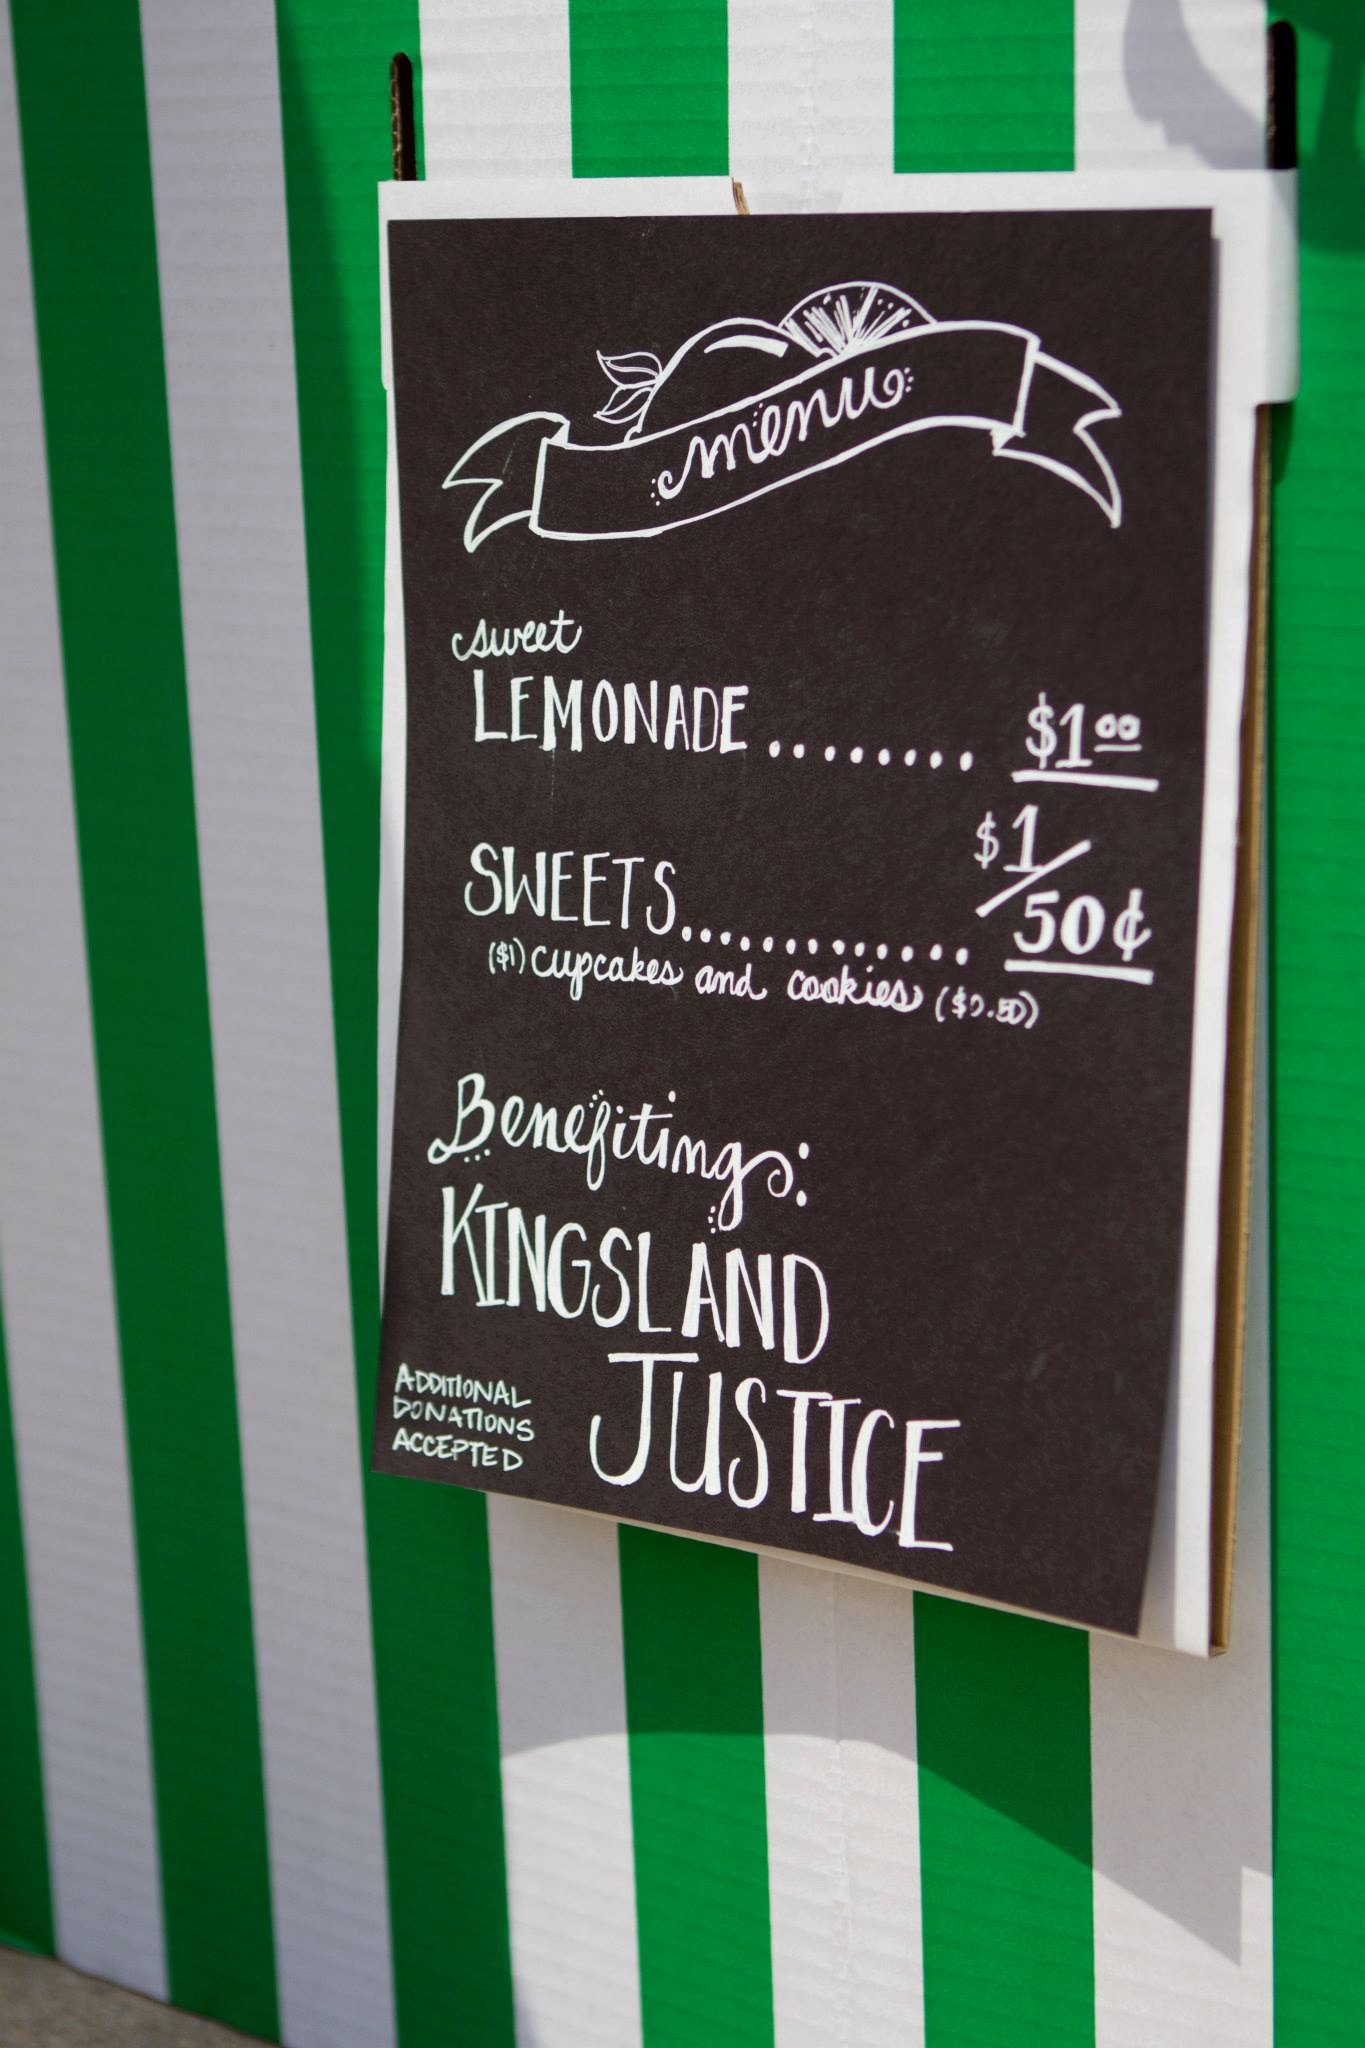 menu
sweet
LEMONADE ........ $1.00
$1/
SWEETS............. 50¢
($1) cupcakes and cookies ($0.50)
Benefiting:
KINGSLAND
JUSTICE
ADDITIONAL
DONATIONS
ACCEPTED